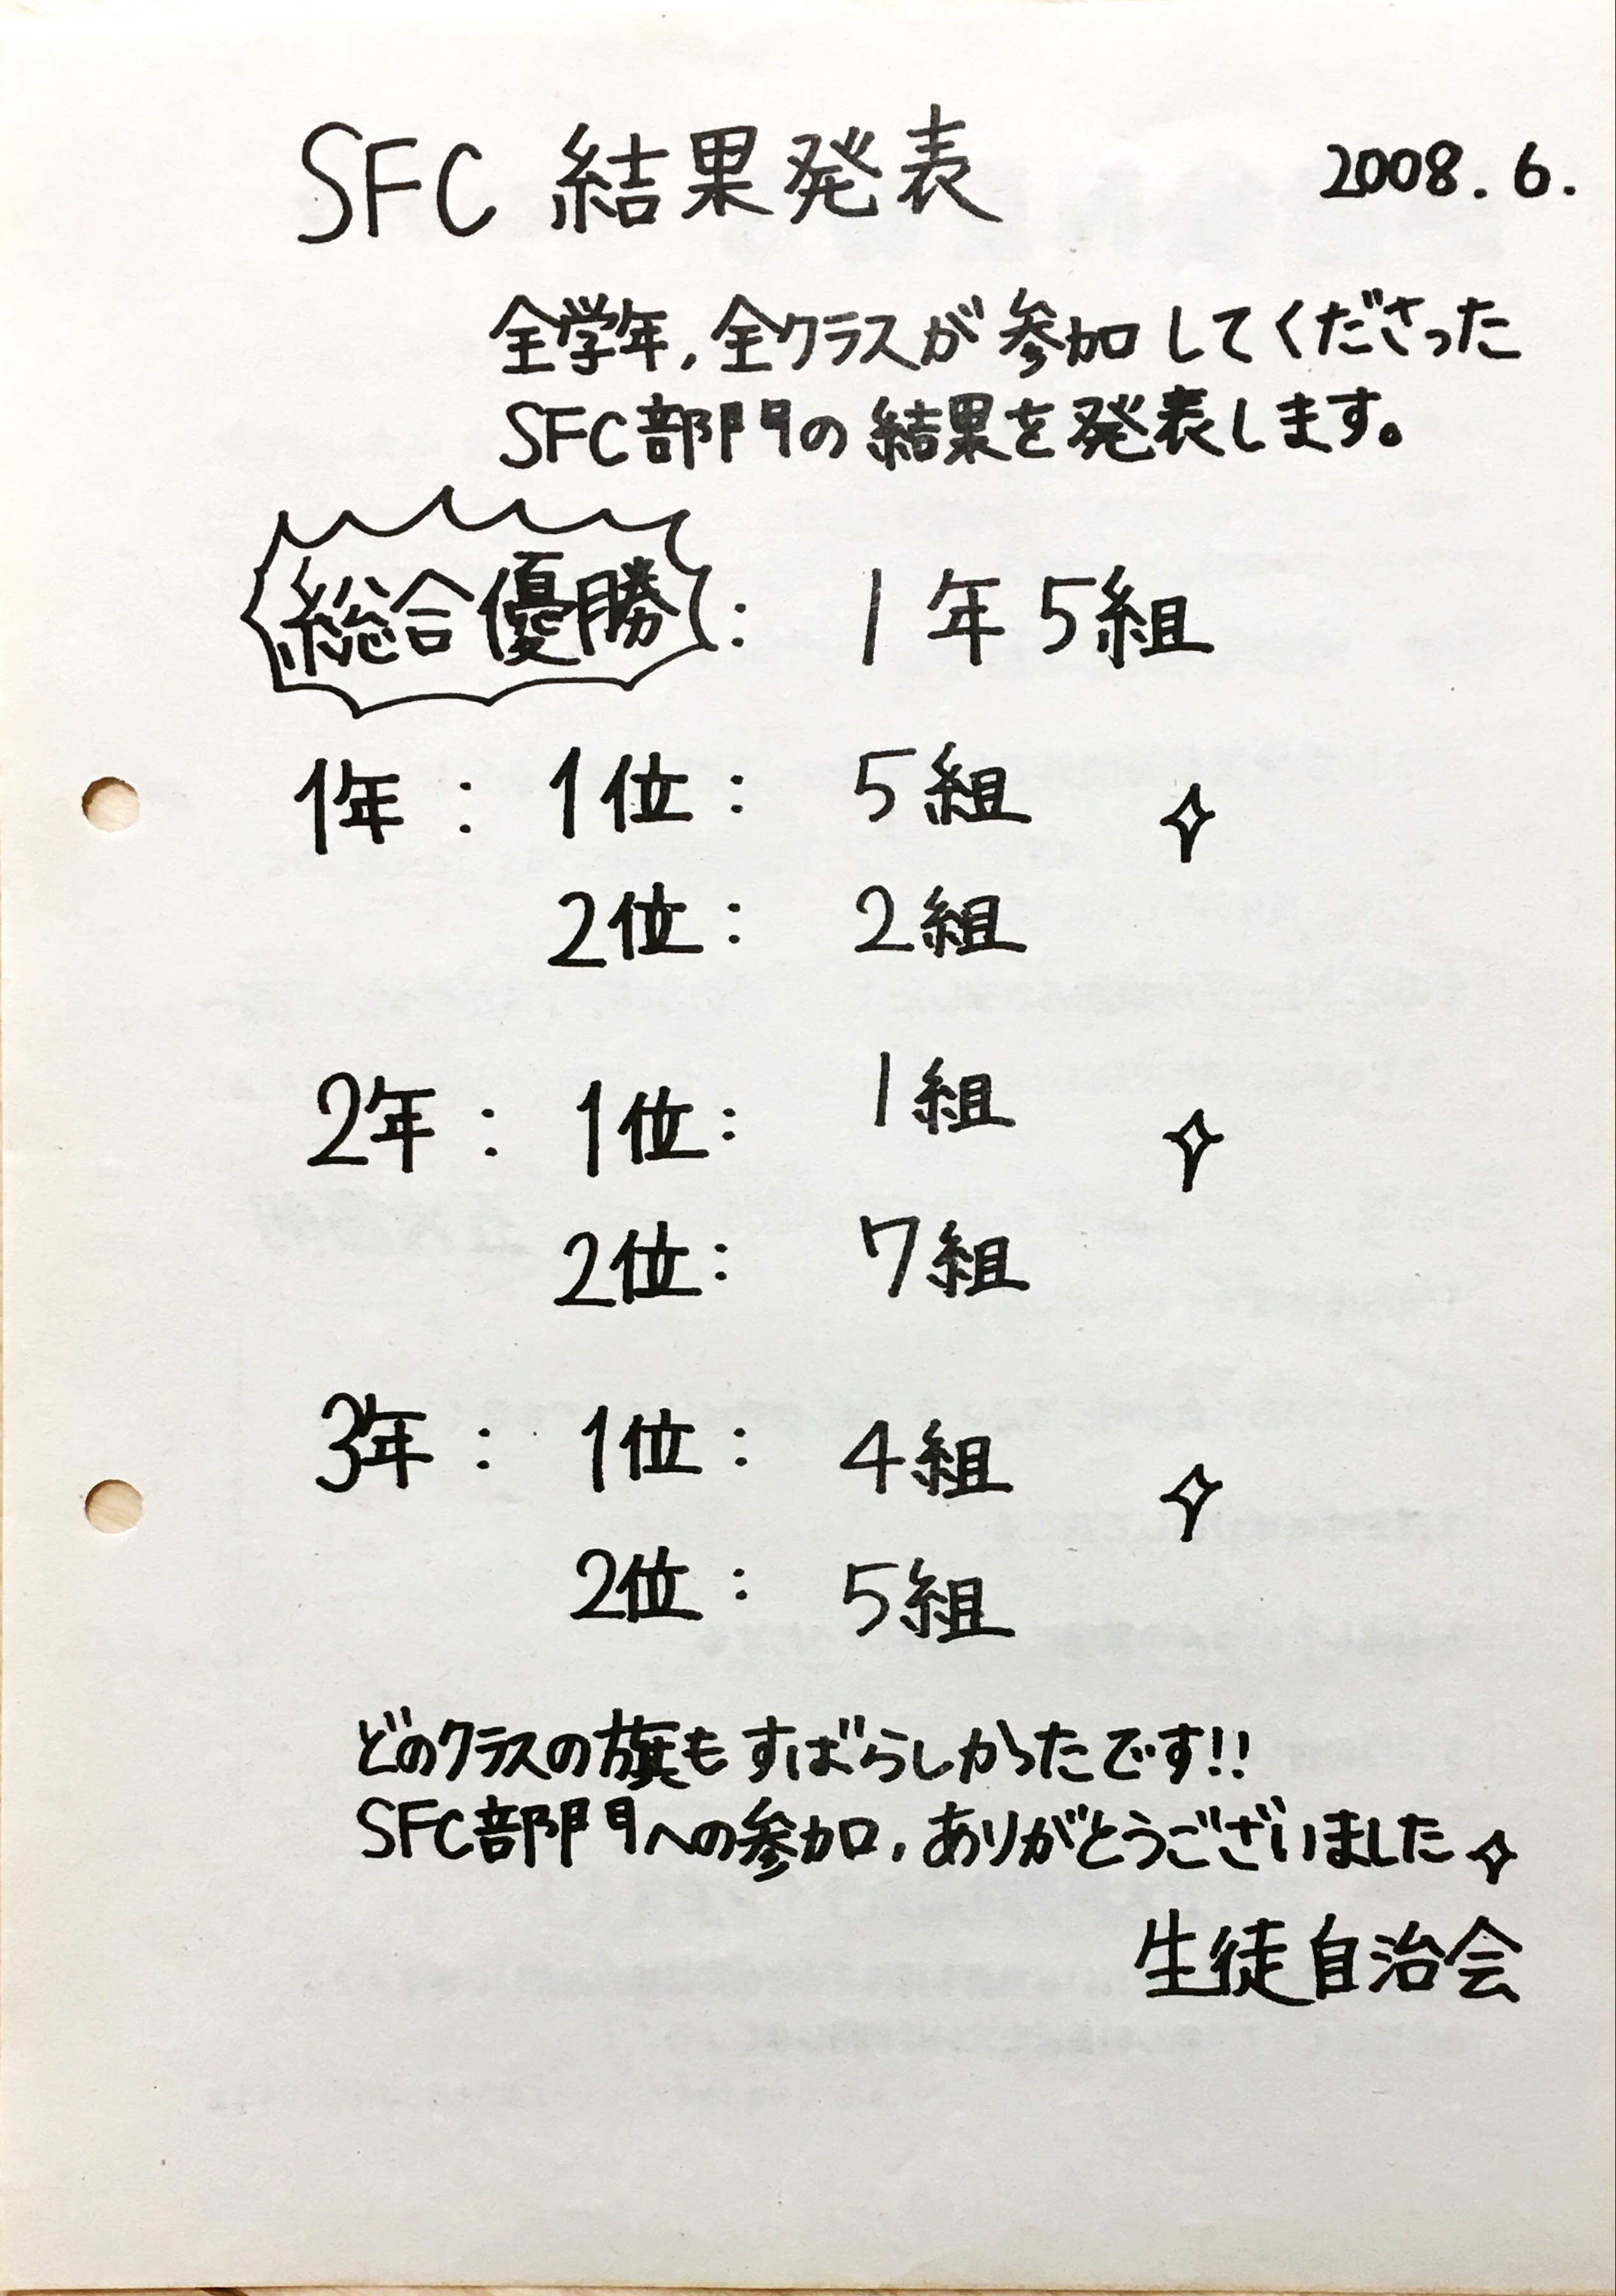 SFC 結果発表 2008.6.
全学年,全クラスが参加してくださった
SFC部門の結果を発表します。
総合優勝: 1年5組
1年: 1位: 5組
2位: 2組
2年: 1位: 1組
2位: 7組
3年: 1位: 4組
2位: 5組
どのクラスの旗もすばらしかったです!!
SFC部門への参加,ありがとうございました
生徒自治会